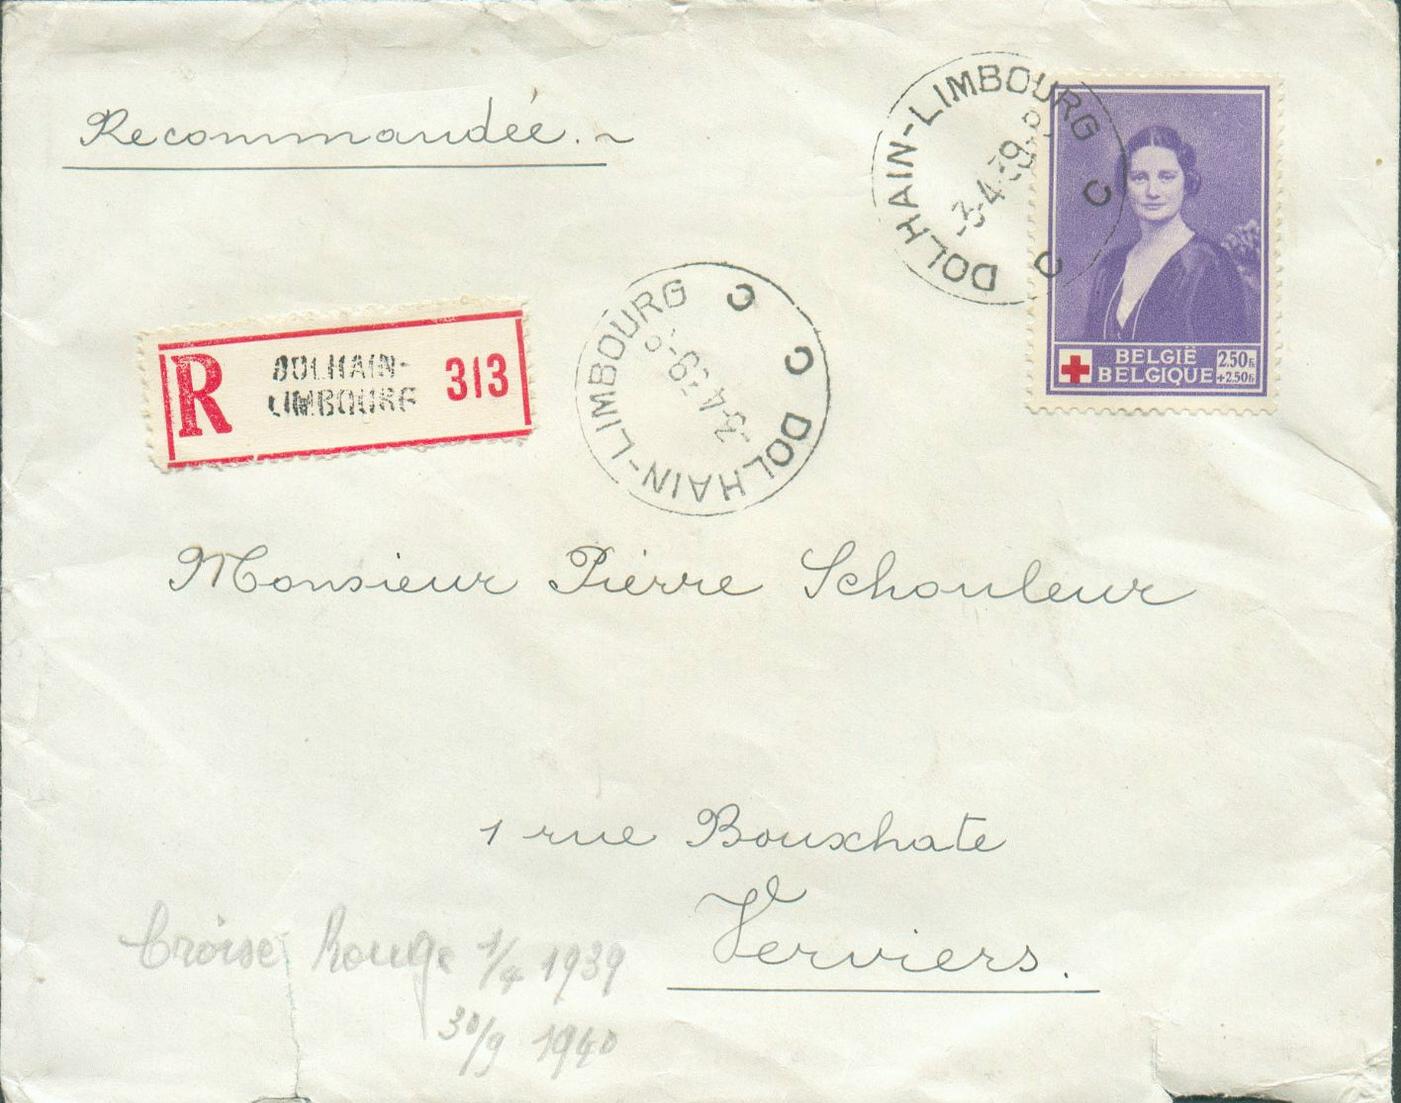 Recommandée.~
DOLHAIN-LIMBOURG C C
-3-4-39
BELGIË
BELGIQUE
2.50 fr.
+2.50 fr.
R DOLHAIN-LIMBOURG 313
DOLHAIN-LIMBOURG C C
-3-4-39
Monsieur Pierre Schouleur
1 rue Bouxhate
Verviers.
Croise Rouge 1/4 1939
30/9 1940